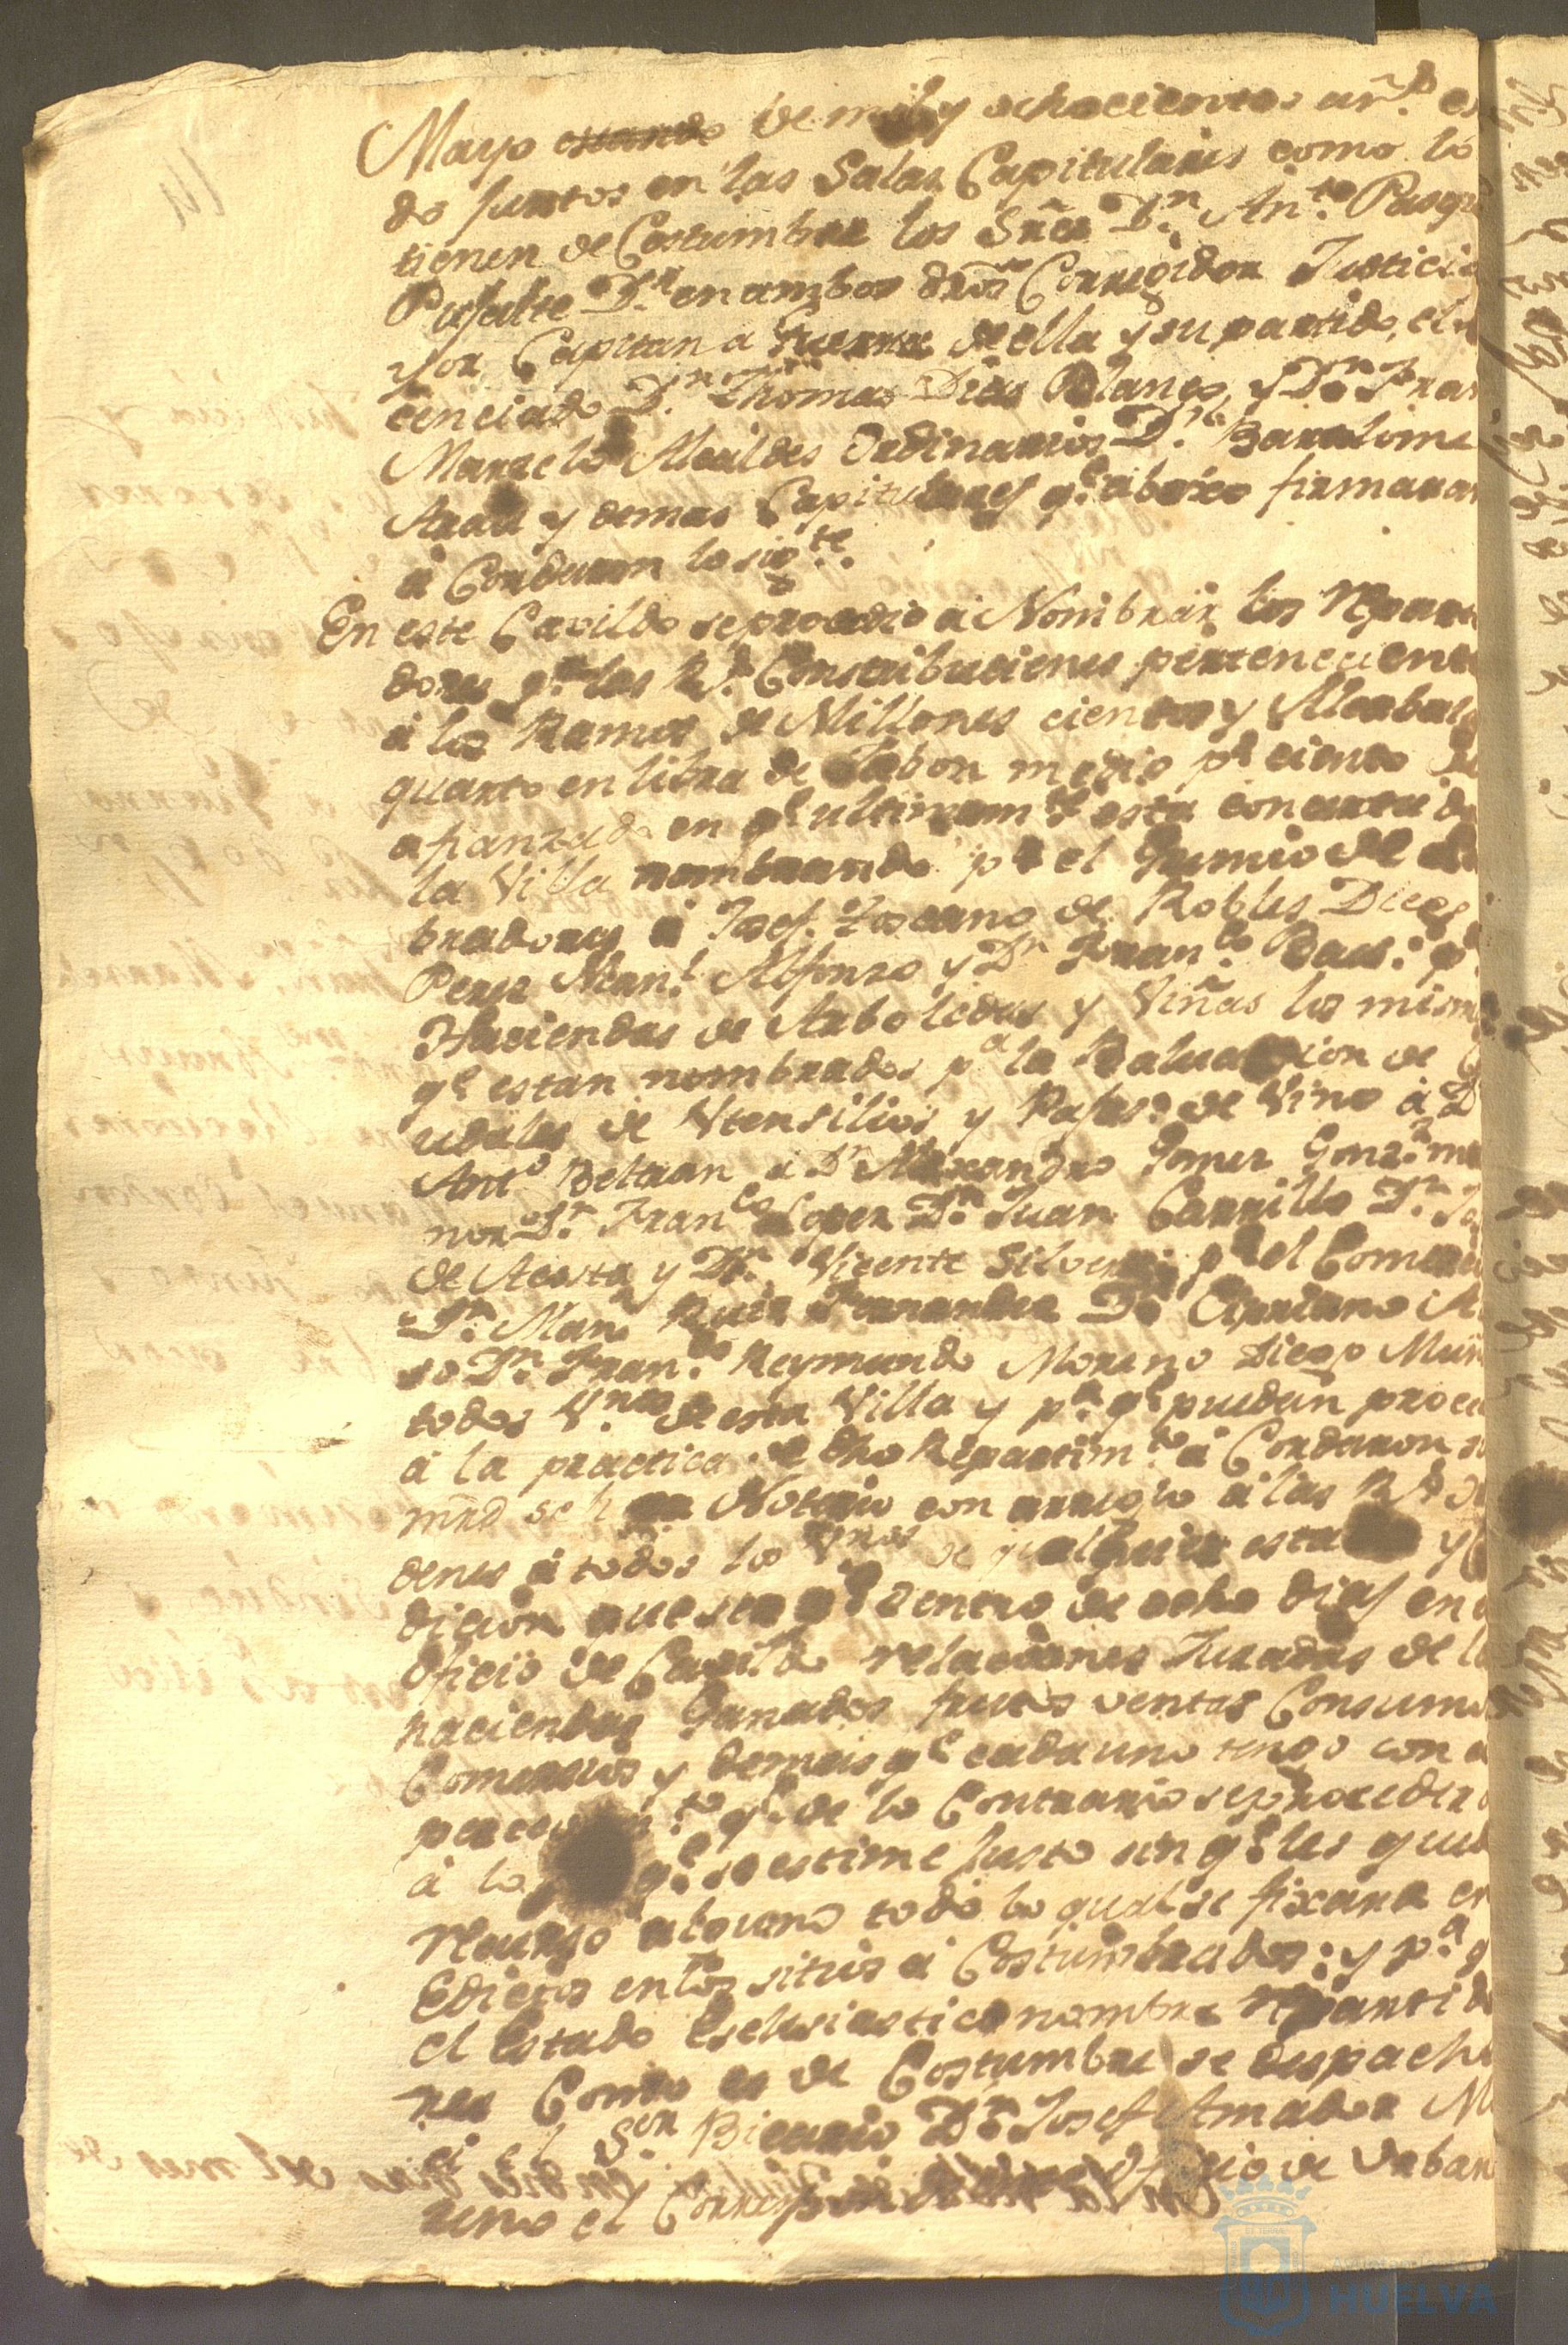 Mayo estando de mil y ochocientos añ.s es
do Juntos en las Salas Capitulares como lo
tienen de Costumbre los Sres D.n Ant.o
D.r en ambos dros Corregidor Justicia
yor Capitan a Guerra de ella y su partido, el
cenciado D.n Thomas Dias Blanco, y D.n Fran
Alcaldes Ordinarios D.n Bartolome
y demas Capitulares q.e abaxo firmaran
á Cordaron lo sig.te
En este Cavildo se procedio á Nombrar los Reparti
dores p.a las R.s Contribuciones pertenecient
á los Ramos de Millones cientos y Alcabala
quarto en libra de Jabon medio p.r ciento
afianzado en q.e ultimam.te esta concurtada
la Villa nombrando p.r el Gremio de La
bradores á Josef Toscano de Robles Diego
Perez Man.l Alfonzo y D.n Fran.co p.r
Haciendas de Arboledas y Viñas los mism
q.e estan nombrados p.a la Baluacion de C
udales de Utensilios y de Vino á D
Ant.o Beltran á D.n Alexandro Gomez Gonz.z me
nor D.n Fran.co Lopez D.n Juan Carrillo D.n Jo
de Acosta y D.n Vicente p.r el Comerci
D.n Man.l Ruiz Fernandez D.n Cipriano
so D.n Fran.co Reymundo Moreno Diego Muñ
todos V.nos de esta Villa y p.a q.e puedan proce
á la practica de dho Repartim.to á Cordaron
mrd se h Notorio con arreglo á las R.s Or
denes á todos los V.nos de qualquier esta y
dicion que sea q.e dentro de ocho dias en
Oficio de Cavildo relaciones Juradas de la
haciendas Ganados frutos ventas Consumo
Comercios y demas q.e cada uno tenga con a
to q.e de lo Contrario se procedera
á lo q.e se estime Justo sin q.e les que
recurso alguno todo lo qual se fixara en
Edictos en los sitios á Costumbrados: y p.a q
el Estado Esclesiastico nombre repartido
res Como es de Costumbre se despach
á el S.or Bicario D.n Josef Amador M
reno el Correspondiente Oficio de Urban